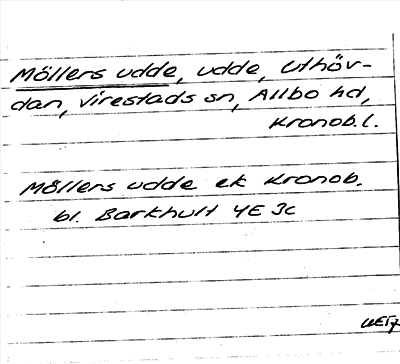 Möllers udde, udde, Uthöv-
dan, Virestads sn, Allbo hd,
Kronob.l.
Möllers udde ek Kronob.
bl. Barkhult 4E 3c